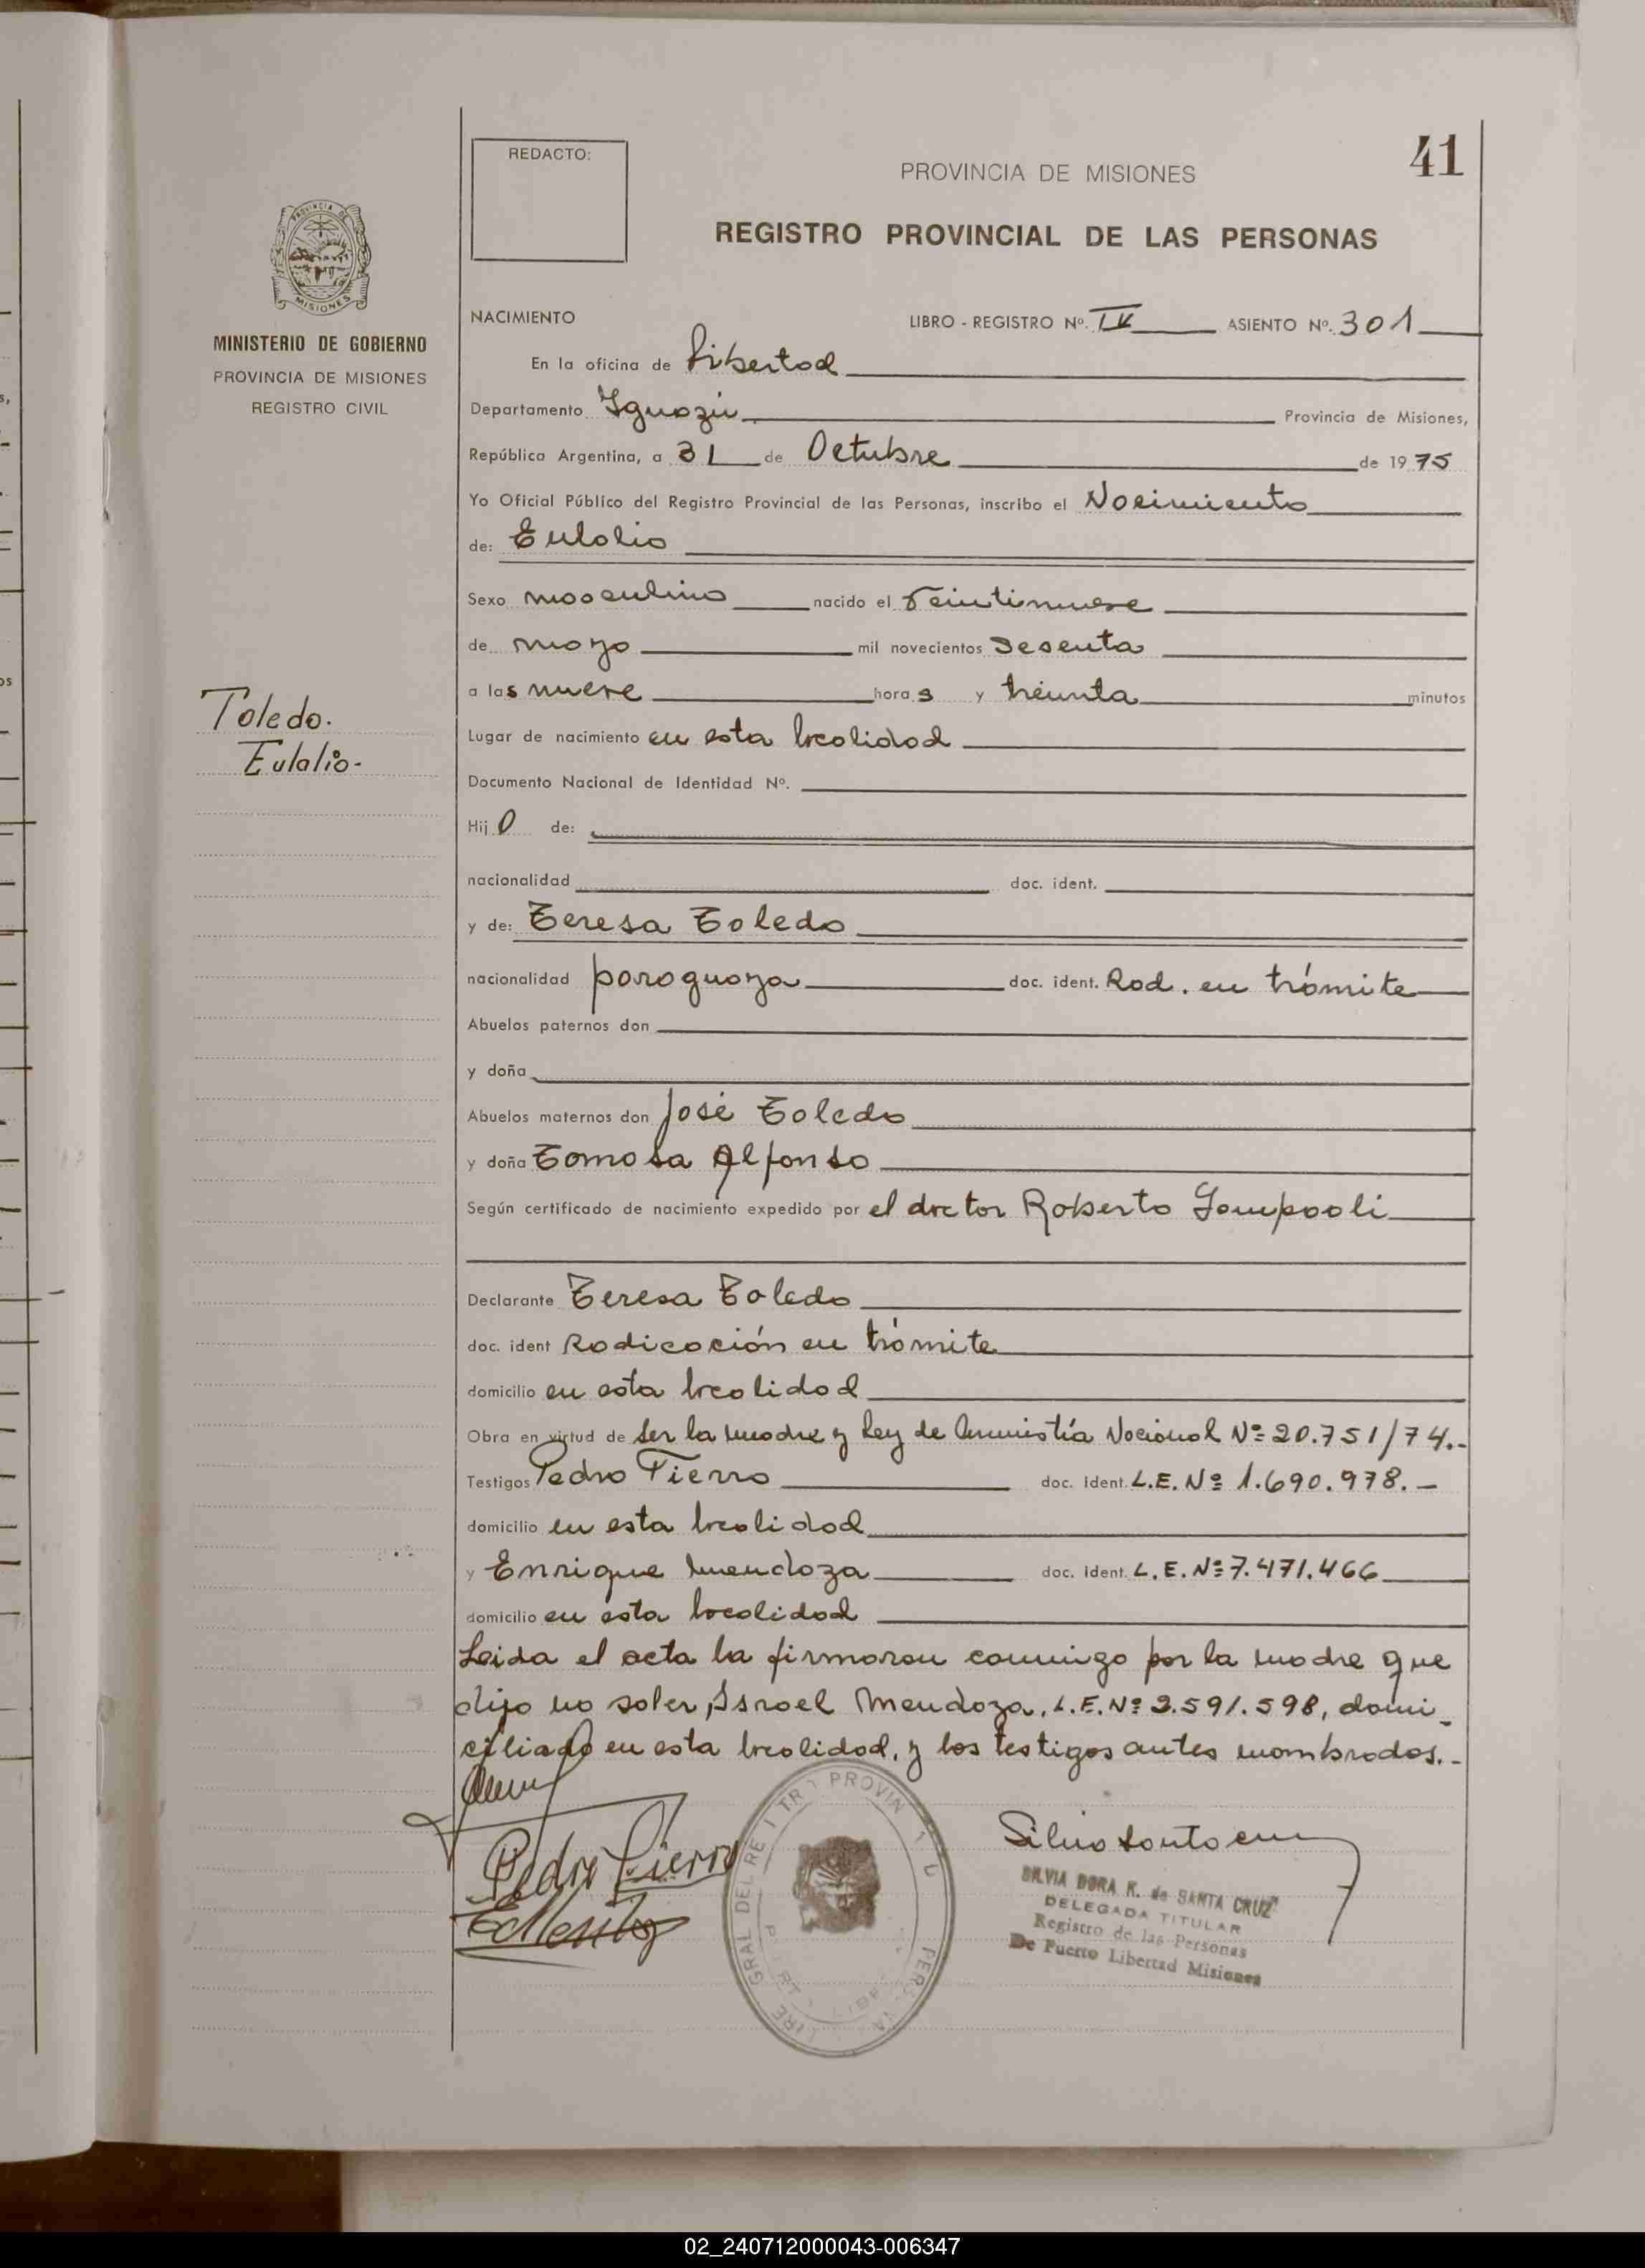 41
REDACTO:
PROVINCIA DE MISIONES
REGISTRO PROVINCIAL DE LAS PERSONAS
PROVINCIA DE
MISIONES
MINISTERIO DE GOBIERNO
PROVINCIA DE MISIONES
REGISTRO CIVIL
Toledo.
Eulalio-
NACIMIENTO LIBRO - REGISTRO Nº. IV ASIENTO Nº. 301
En la oficina de Libertad
Departamento Iguazú Provincia de Misiones,
República Argentina, a 31 de Octubre de 1975
Yo Oficial Público del Registro Provincial de las Personas, inscribo el Nacimiento
de: Eulalio
Sexo masculino nacido el veintinueve
de mayo mil novecientos sesenta
a las nueve horas y treinta minutos
Lugar de nacimiento en esta localidad
Documento Nacional de Identidad Nº.
Hijo de:
nacionalidad doc. ident.
y de: Teresa Toledo
nacionalidad paraguaya doc. ident. Rad. en trámite
Abuelos paternos don
y doña
Abuelos maternos don José Toledo
y doña Tomasa Alfonso
Según certificado de nacimiento expedido por el doctor Roberto
Declarante Teresa Toledo
doc. ident Radicación en trámite
domicilio en esta localidad
Obra en virtud de ser la madre y Ley de Amnistía Nacional Nº 20.751/74.-
Testigos Pedro Fierro doc. ident. L.E. Nº 1.690.978.-
domicilio en esta localidad
y Enrique Mendoza doc. ident. L.E. Nº 7.471.466
domicilio en esta localidad
Leida el acta la firmaron conmigo por la madre que
dijo no saber, Israel Mendoza, L.E. Nº 2.591.598, domi-
ciliado en esta localidad, y los testigos antes nombrados.-
Pedro Fierro
SILVIA DORA K. de SANTA CRUZ
DELEGADA TITULAR
Registro de las Personas
De Puerto Libertad Misiones
02_240712000043-006347